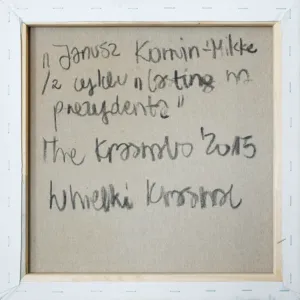 „Janusz Korwin-Mikke
/z cyklu „Casting na
prezydenta”
The Krasnals '2015
Whielki Krasnal